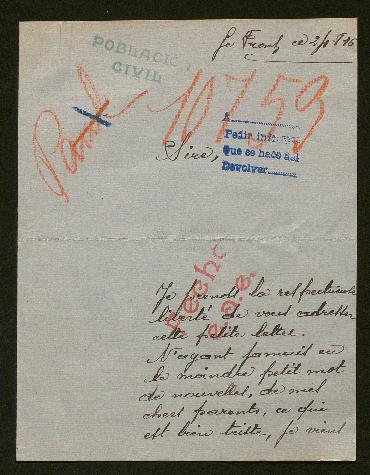 Le Front, ce 2/1 916
POBLACION
CIVIL
10753
Sire,
A
Pedir informes
Que se hace así
Devolver
Hecho
Je prends la respectueuse
liberté de vous adresser
cette petite lettre.
N'ayant jamais eu
le moindre petit mot
de nouvelles, de mes
chers parents, ce qui
est bien triste, je viens